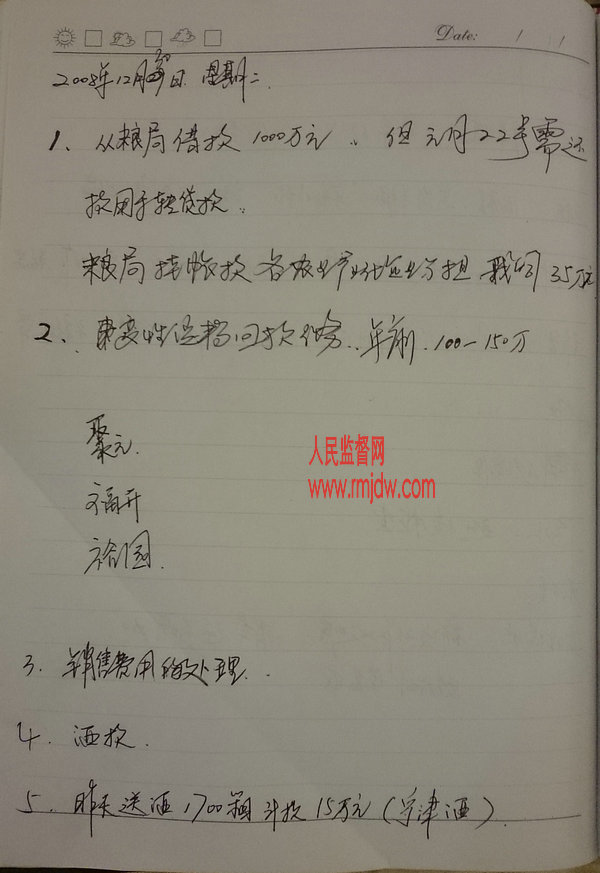 Date: 1 1
2008年12月30日 星期二
1、从粮局借款1000万元、但元月22号需还
款用于转贷款、
粮局挂账款各农业产业化企业分担 我公司35万元
2、回款任务、年前、100-150万
聚元
福开
裕国
人民监督网
www.rmjdw.com
3、销售费用的处理、
4、酒款、
5、昨天送酒1700箱计款15万元(宁津酒)